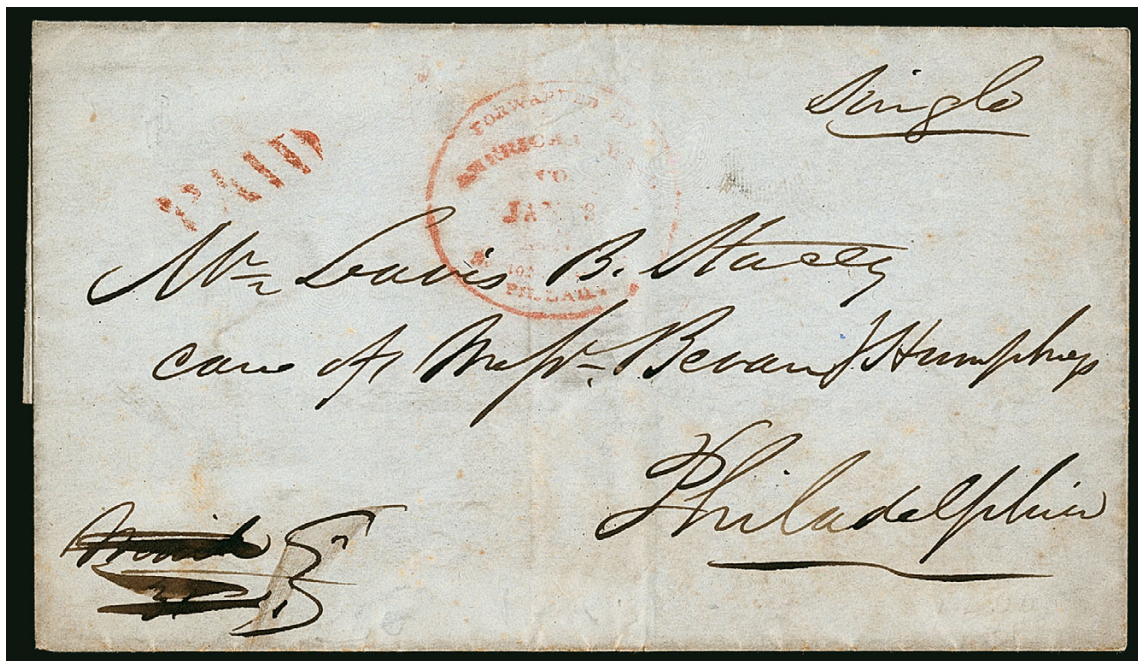 Single
PAID
FORWARDED BY
AMERICAN
CO
JAN
PHILADA
Mr. Lewis B. Stacey
care of Messrs. Bevan & Humphreys
Philadelphia